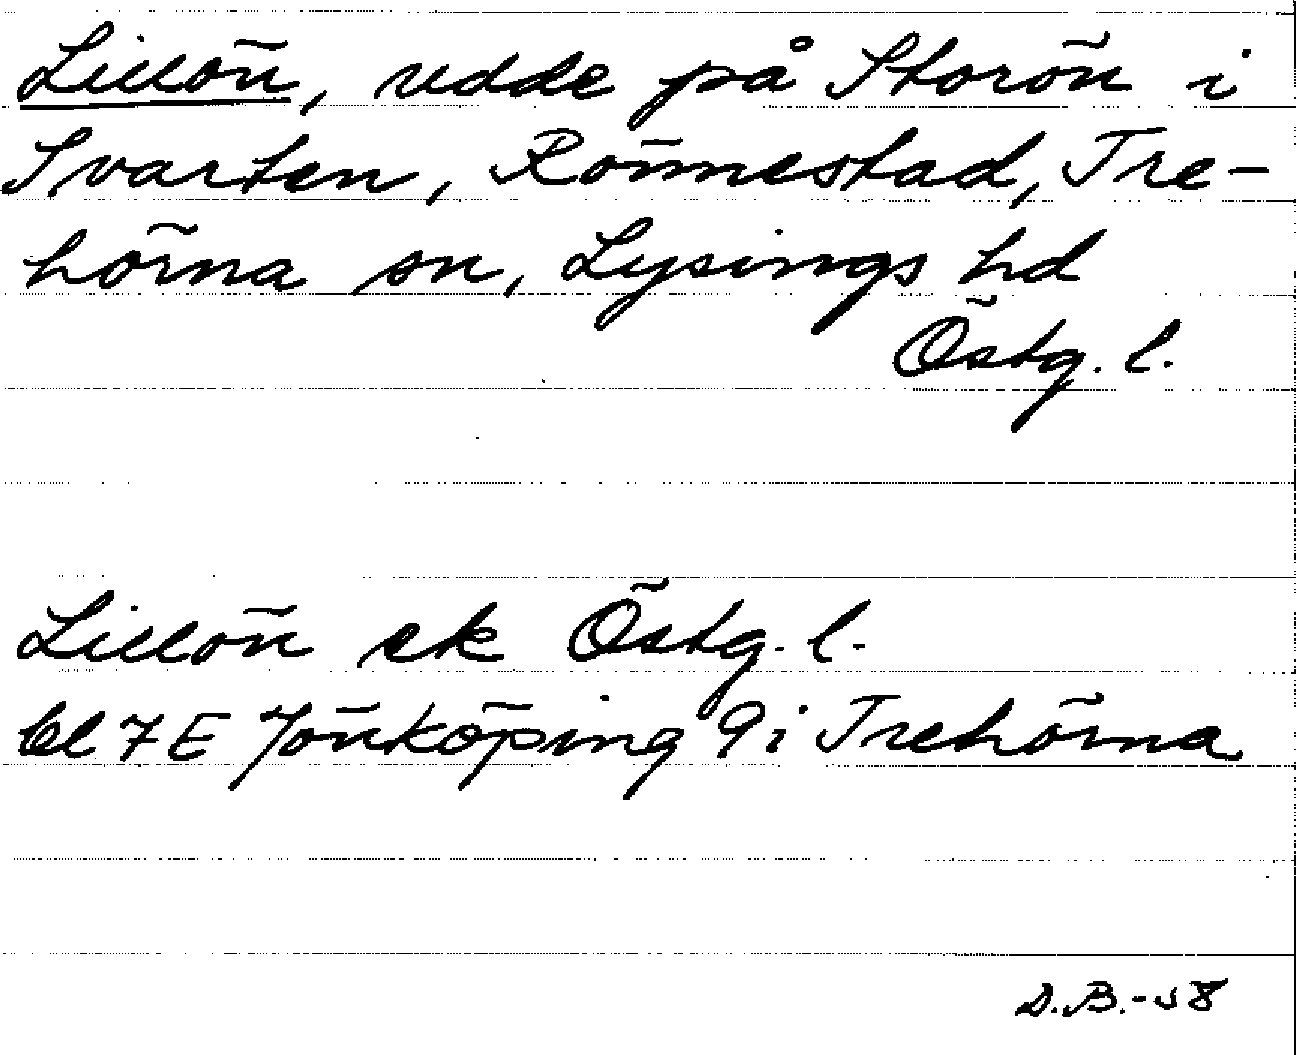 Lillön, udde på Storön i
Svarten, Rönnestad, Tre-
hörna sn, Lysings hd
Östg. l.
Lillön ek Östg. l.
bl 7E Jönköping 9i Trehörna
D.B.-58